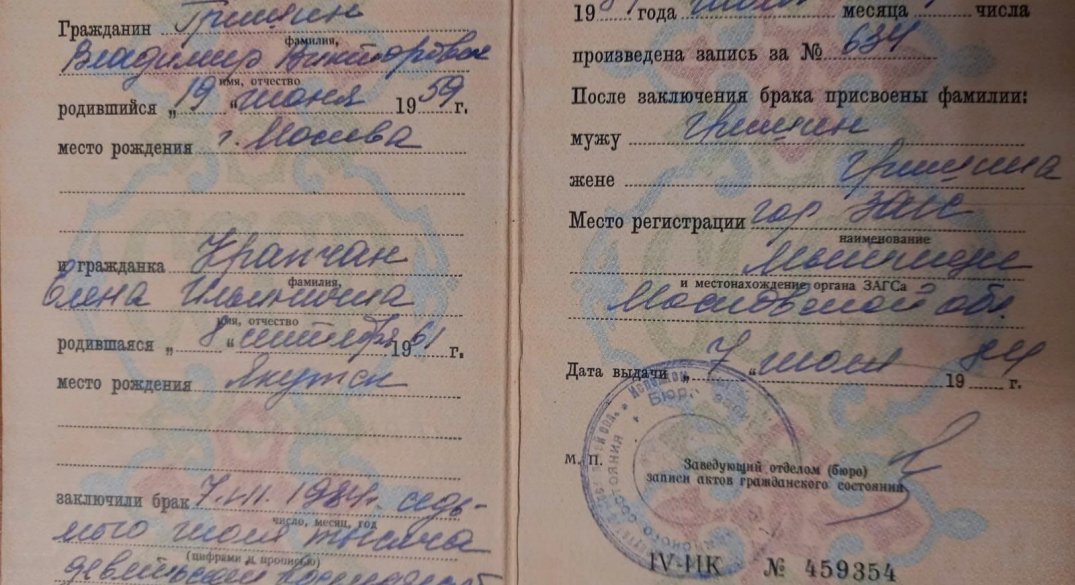 Гражданин Гришин
фамилия,
Владимир Викторович
имя, отчество
родившийся „ 19 “ июня 19 59 г.
место рождения г. Москва
и гражданка Крапчан
фамилия,
Елена Ильинична
имя, отчество
родившаяся „ 8 “ сентября 19 61 г.
место рождения Якутск
заключили брак 7.VII. 1984г. седь-
число, месяц, год
мого июля тысяча
(цифрами и прописью)
девятьсот
19 84 года июля месяца числа
произведена запись за № 634
После заключения брака присвоены фамилии:
мужу Гришин
жене Гришина
Место регистрации гор ЗАГС
наименование
Мытищи
и местонахождение органа ЗАГСа
Московской обл.
Дата выдачи „ 7 “ июля 19 84 г.
М. П.
Заведующий отделом (бюро)
записи актов гражданского состояния
IV-ИК № 459354